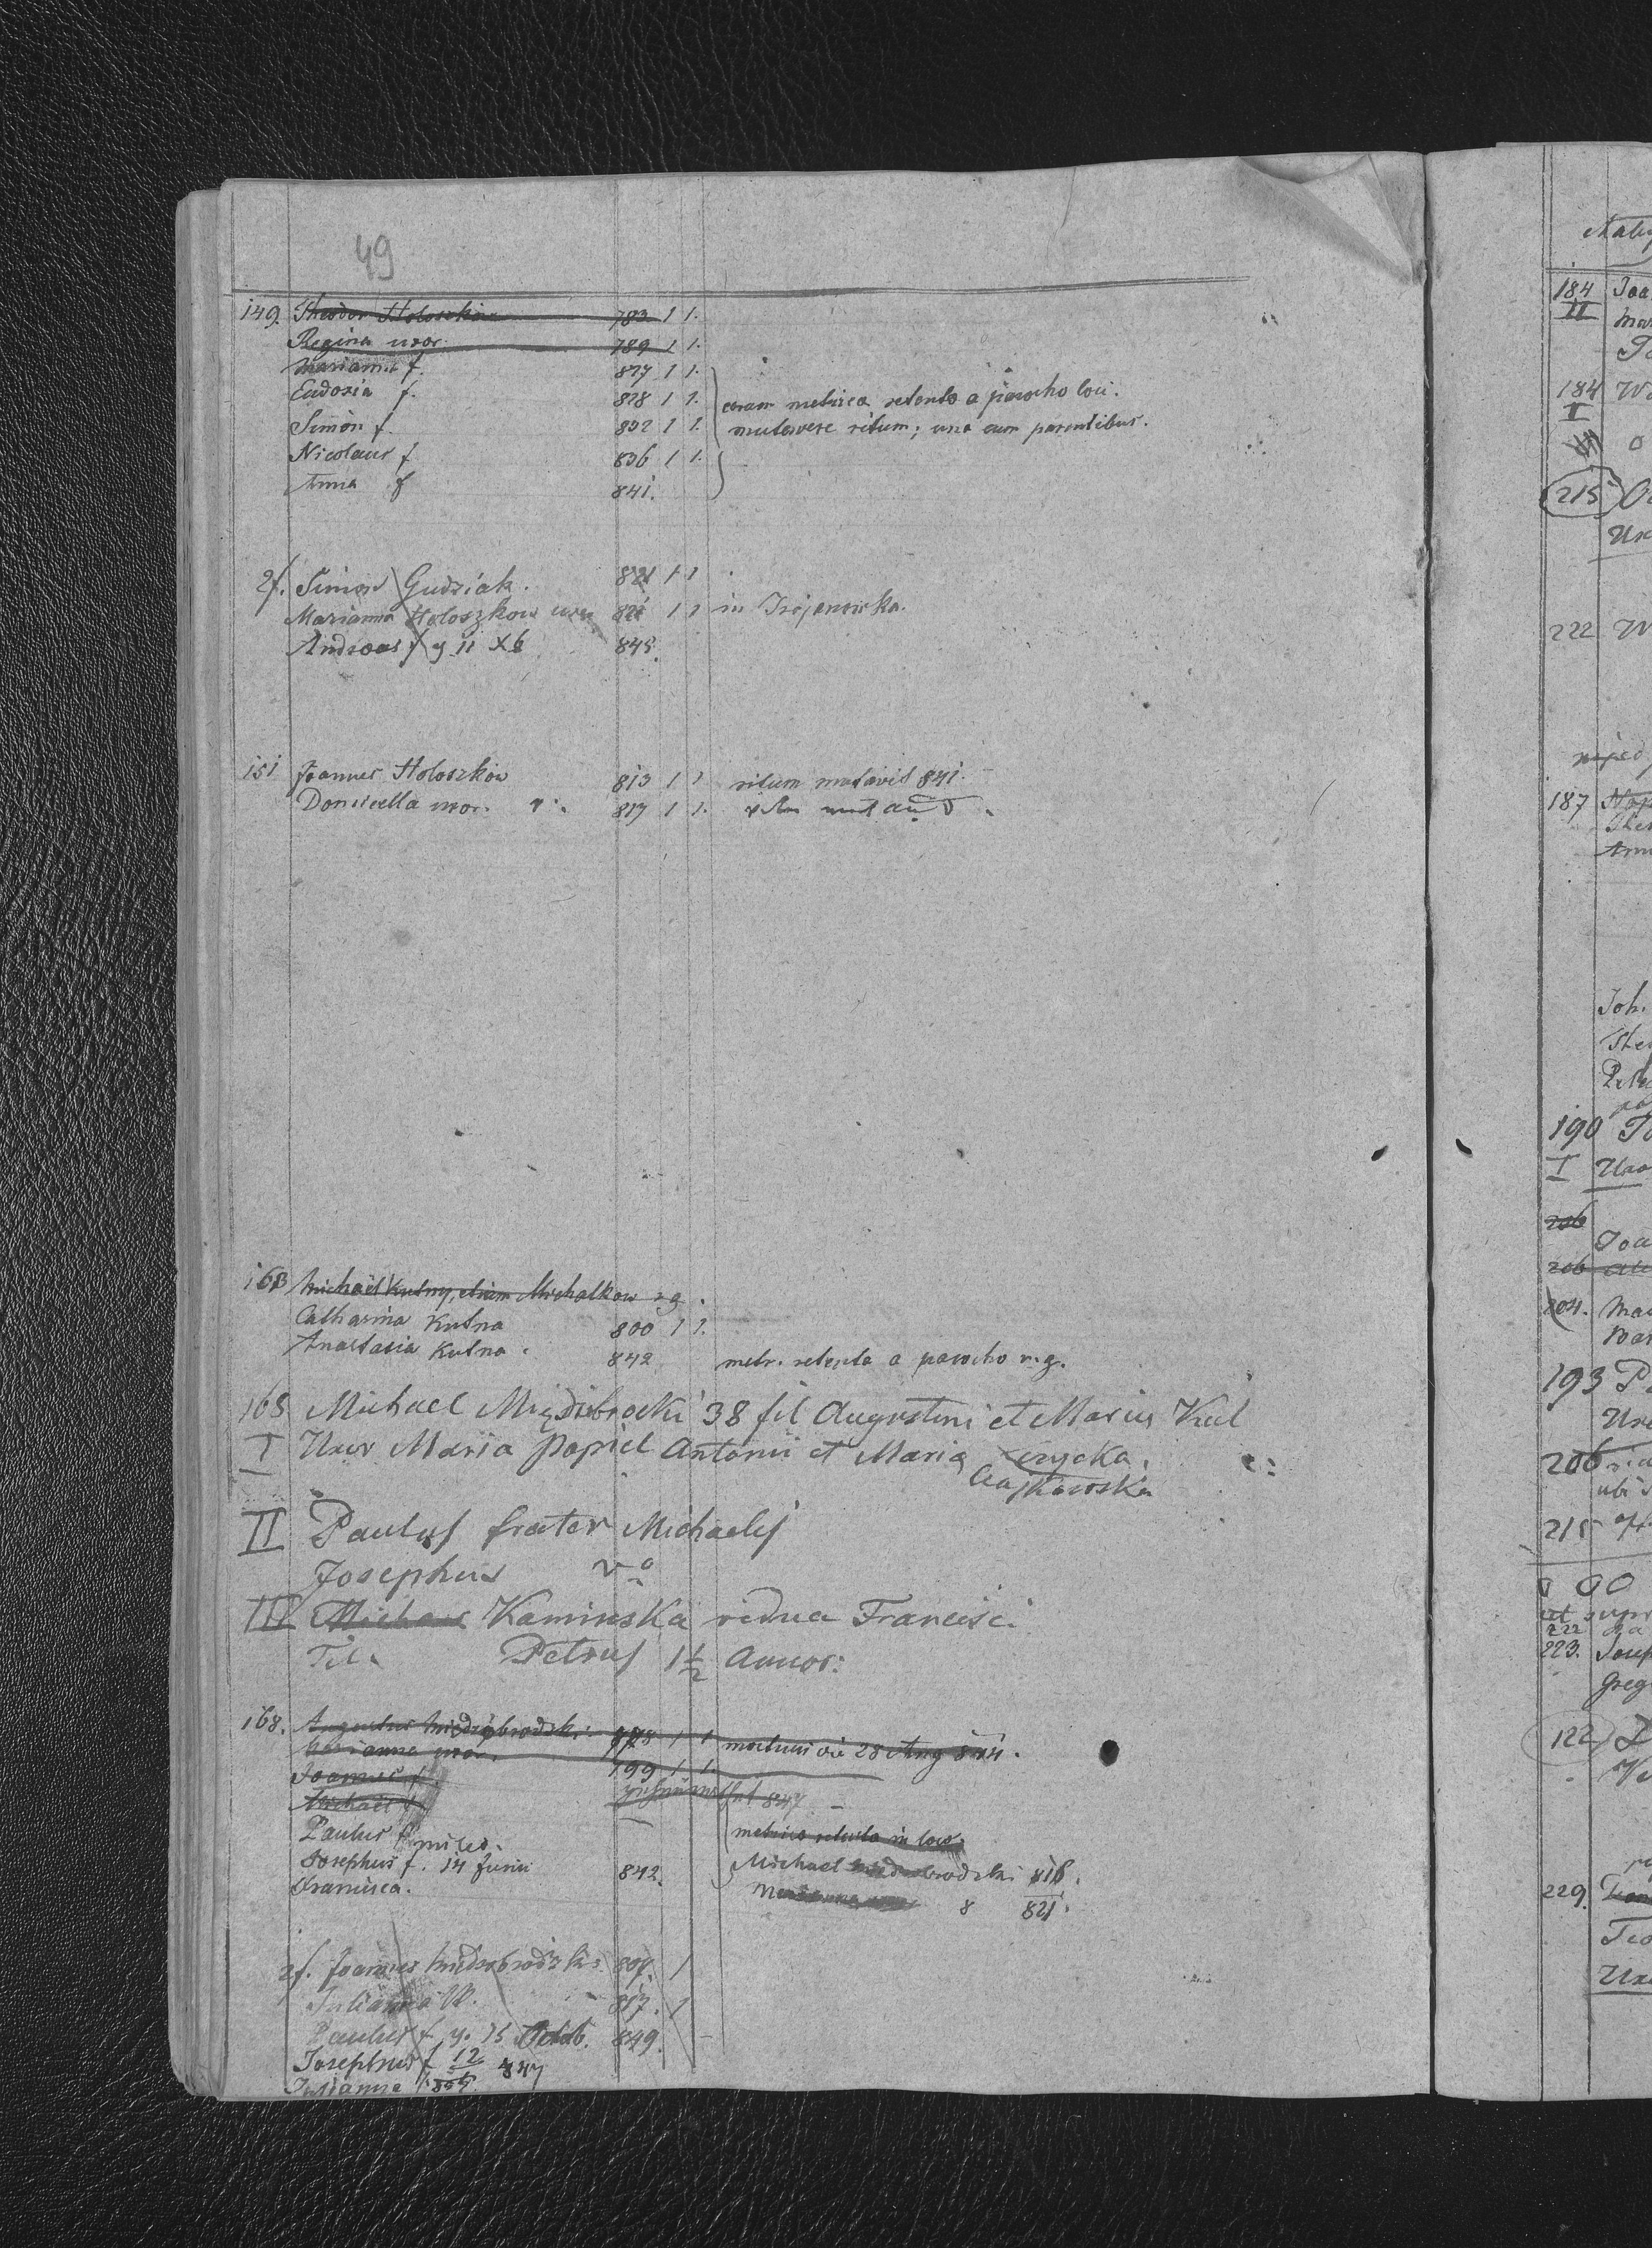 49
149. Theodor Holoszkow 783 1 1.
Regina uxor 789 1 1.
Marianna f. 827 1 1.
Eudoxia f. 828 1 1. earum metrica retenta a parocho loci.
Simon f. 832 1 1. mutavere ritum; una cum parentibus.
Nicolaus f. 836 1 1.
Anna f 841.
2f. Simon Gudziak. 821 1 1
Marianna Holoszkow uxor 1 1 in Trójanowka.
Andreas f g 11 Xb 845.
151 Joannes Holoszkow 813 1 1 ritum mutavit 841.
Domicella uxor. 817 1 1.
163 Michael Kutny, etiam Michalkow r.g.
Catharina Kutna 800 1 1.
Anastasia Kutna. 842 metr. retenta a parocho r.g.
168 Michael Międzibrocki 38 fil Augustini et Maria Kul
I Uxor Maria Popiel Antonii et Maria
Czajkowska
II Paulus frater Michaelis
Josephus
III Kaminska vidua Francisci
Fil. Petrus 1 1/2 Annor:
168. Augustus Miedzybrodzki 778 1 1 mortuus die 28 Aug 844.
Marianna uxor. 799 1 1.
Joannes f.
Michael f. 847
Paulus f miles. metrica retenta in loco
Josephus f. 14 Junii 842. Michael Miedzybrodzki 816.
Francisca. 8 821.
2f. Joannes Miedzybrodzki. 807 1
Julianna W. 817. 1
Paulus f g. 15 Octob. 849.
Josephus f 12 847
Julianna f.
184 Joa
II Mar
184 W
I
215
Ux
222 W
187
Ther
Ann
Joh.
190
I Uxo
206
Joa
206
204. Mar
193 P
Uxo
206
215
ut supr
222
223. Josep
Greg
122
229.
Uxo